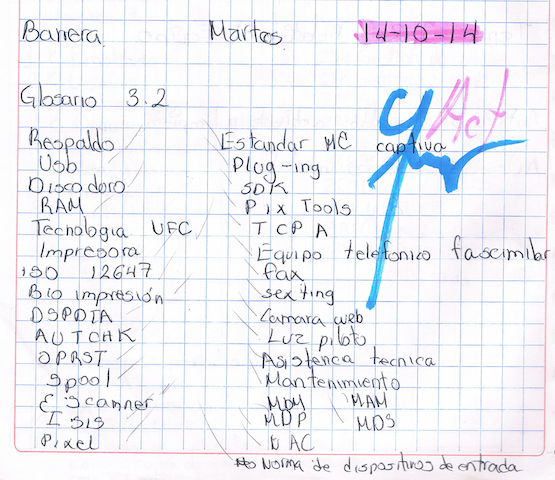 Barrera Martes 14-10-14
Act
Glosario 3.2
Respaldo
Usb
Disco doro
RAM
Tecnologia UFC
Impresora
ISO 12647
Bio impresión
DSPDTA
AUTCHK
OPRST
Spool
Escanner
ISIS
Pixel
Estandar MC captiva
Plug-ing
SDK
Pix Tools
TCPA
Equipo telefonico fascimilar
fax
sexting
Camara web
Luz piloto
Asistenca tecnica
Mantenimiento
MDM MAM
MDP MDS
DAC
Norma de dispositivos de entrada